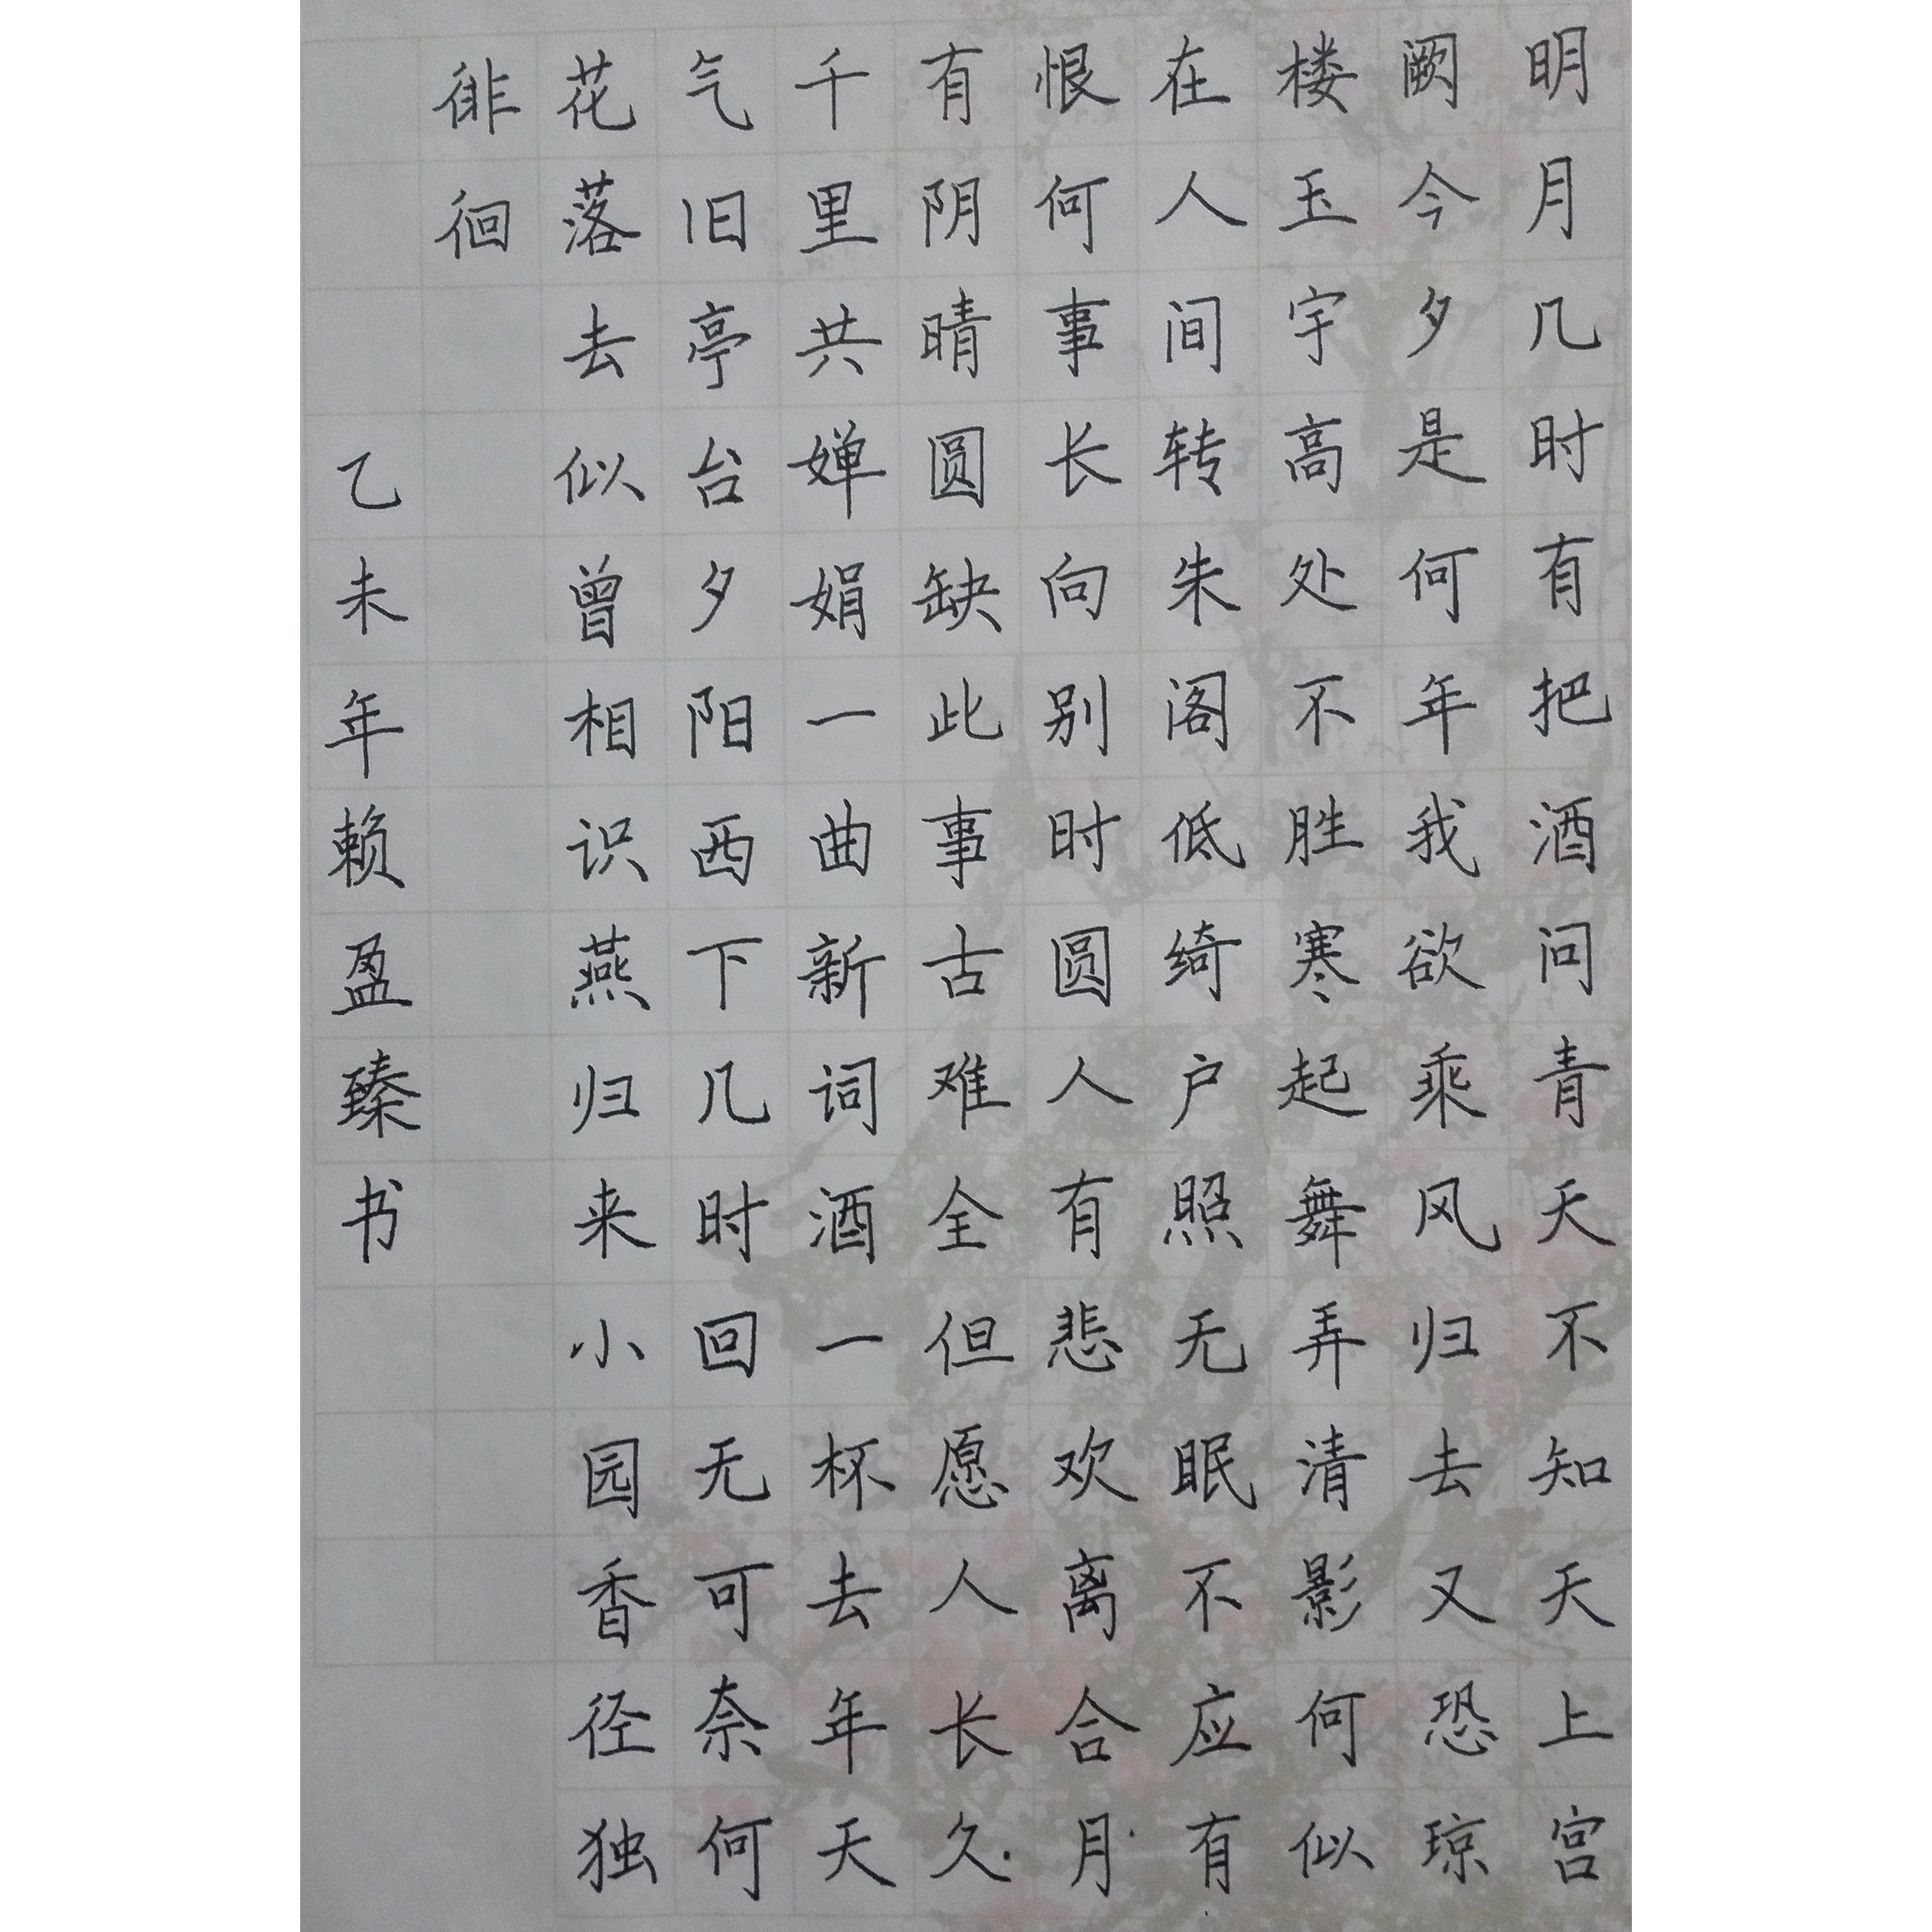 明月几时有把酒问青天不知天上宫
阙今夕是何年我欲乘风归去又恐琼
楼玉宇高处不胜寒起舞弄清影何似
在人间转朱阁低绮户照无眠不应有
恨何事长向别时圆人有悲欢离合月
有阴晴圆缺此事古难全但愿人长久
千里共婵娟一曲新词酒一杯去年天
气旧亭台夕阳西下几时回无可奈何
花落去似曾相识燕归来小园香径独
徘徊
乙未年赖盈臻书